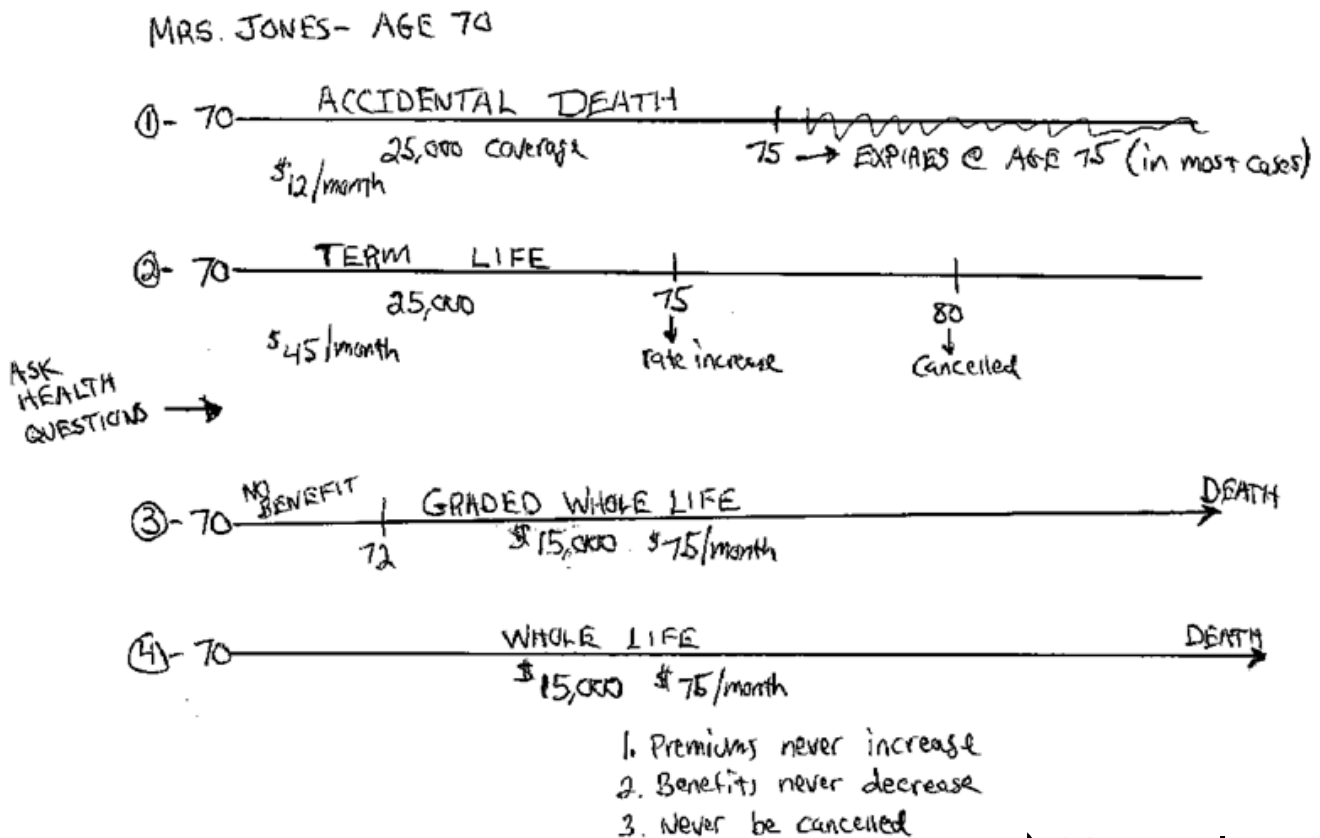 MRS. JONES- AGE 70
①- 70 ACCIDENTAL DEATH
25,000 coverage
$12/month
75 → EXPIRES @ AGE 75 (in most cases)
②- 70 TERM LIFE
25,000
$45/month
75
rate increase
80
cancelled
ASK
HEALTH
QUESTIONS →
③- 70 NO BENEFIT
72
GRADED WHOLE LIFE
$15,000 $75/month
DEATH
④- 70 WHOLE LIFE
$15,000 $75/month
DEATH
1. Premiums never increase
2. Benefits never decrease
3. Never be cancelled